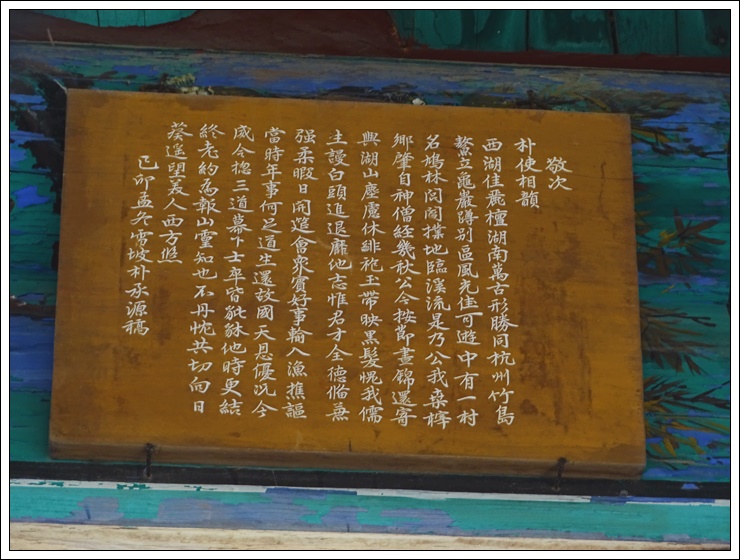 敬次
朴使相韻
西湖佳麗檀湖南萬古形勝同杭州竹島
鰲立龜巖蹲別區風光佳可遊中有一村
名鳩林閭閻撲地臨溪流是乃公我桑梓
鄉肇自神僧經幾秋公今按節晝錦還寄
與湖山塵慮休緋袍玉帶映黑髮愧我儒
主謾白頭進退靡他志惟君才全德備兼
强柔暇日開筵會衆賓好事輪入漁樵謳
當時年事何足道生還故國天恩優況今
威令揔三道幕下士卒皆貔貅他時更結
終老約爲報山靈知也不丹忱共切向日
葵遙望美人西方悠
己卯孟冬雪坡朴承源稿